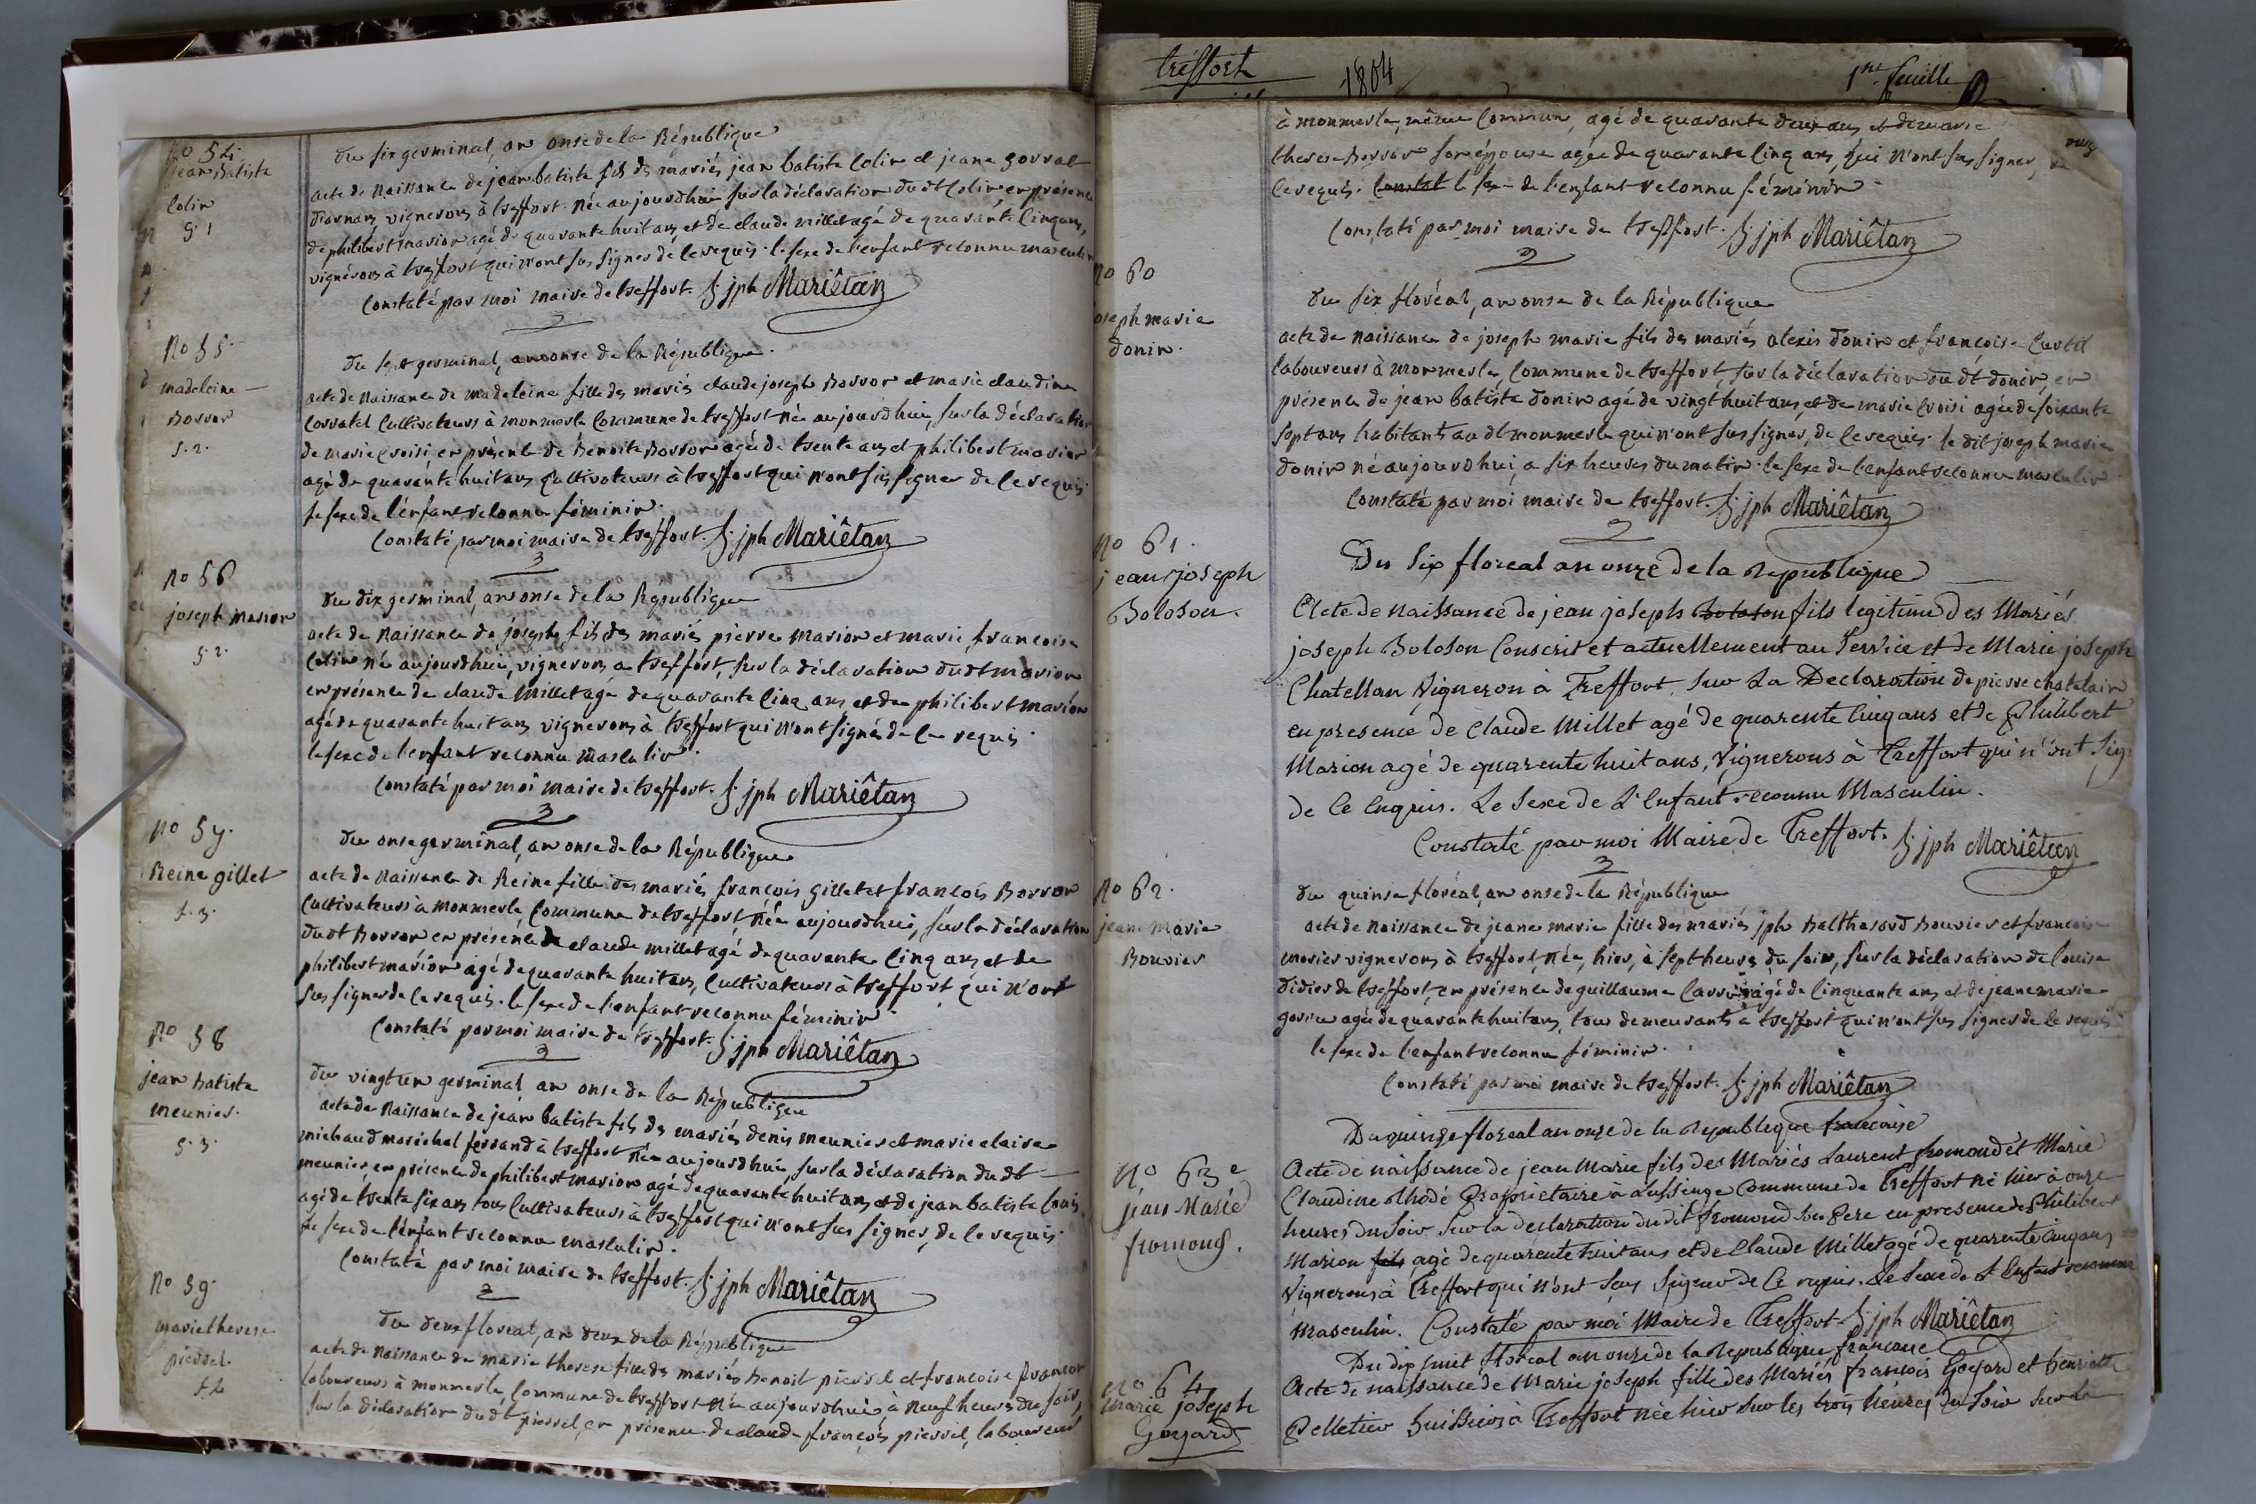 No 54
jean Batiste
Colin
g. 1
Du six germinal, an onse de la République
acte de Naissance de jean batiste fils des mariés jean batiste Colin et jeane gorrat
vignerons à treffort née aujourdhui sur la déclaration dudt Colin en présence
de philibert marion agé de quarante huit ans, et de claude millet agé de quarante Cinq ans,
vignerons à treffort qui n'ont sus signer de ce requis. le sexe de l'enfant reconnu masculin
Constaté par moi maire de treffort. jph Mariêtan
No 55.
madeleine
Borror
g. 2.
Du sept germinal, an onse de la République.
acte de Naissance de madeleine fille des mariés claude joseph Borror et marie claudine
Corratel Cultivateurs à monmerle Commune de treffort née aujourdhui, sur la déclaration
de marie Croisi, en présence de Benoite Borror agé de trente ans et philibert marion
agé de quarante huit ans Cultivateurs à treffort qui n'ont sus signer de ce requis
le sexe de l'enfant reconnu féminin.
Constaté par moi maire de treffort. jph Mariêtan
No 56
joseph marion
g. 2.
Du dix germinal, an onse de la République
acte de Naissance de joseph fils des mariés pierre marion et marie francoise
Colin né aujourdhui, vignerons a treffort, sur la déclaration dudt marion
en présence de claude millet agé de quarante Cinq ans et de philibert marion
agé de quarante huit ans vignerons à treffort qui n'ont signés de ce requis
le sexe de l'enfant reconnu masculin.
Constaté par moi maire de treffort. jph Mariêtan
No 57.
Reine gillet
f. 3.
Du onse germinal, an onse de la République
acte de Naissance de Reine fille des mariés françois gillet et françois Borror
Cultivateurs a monmerle, Commune de treffort, née aujourdhui, sur la déclaration
dudt Borror en présence de claude millet agé de quarante Cinq ans et de
philibert marion agé de quarante huit ans, Cultivateurs à treffort qui n'ont
sus signer de ce requis. le sexe de l'enfant reconnu féminin.
Constaté par moi maire de treffort. jph Mariêtan
No 58
jean batiste
meunier.
g. 3.
Du vingt un germinal an onse de la République
acte de Naissance de jean batiste fils des mariés denis meunier et marie claire
michaud marichal ferrand à treffort née aujourdhui sur la déclaration dudt
meunier en présence de philibert marion agé de quarante huit ans et de jean batiste
agé de trente six ans tous Cultivateurs à treffort qui n'ont sus signer, de ce requis.
le sexe de l'enfant reconnu masculin.
Constaté par moi maire de treffort. jph Mariêtan
No 59.
marie therese
pierrel
Du deux floreal, an deux de la République
acte de Naissance de marie therese fille des mariés benoit pierrel et francoise
laboureurs à monmerle, Commune de treffort née aujourdhui, à neuf heures du soir,
sur la déclaration dudt pierrel, en présence de claude françois pierrel, laboureur
treffort 1804 1re feuille
à monmerle, même Commune, agé de quarante deux ans et demarie
therese Borror son épouse agée de quarante Cinq ans, qui n'ont sus signer, de
ce requis. Constat le sexe de l'enfant reconnu féminin.
Constaté par moi maire de treffort. jph Mariêtan
No 60
joseph marie
donin.
Du six floréal, an onse de la République
acte de Naissance de joseph marie fils des mariés alexis donin et françoise Curtil
laboureurs à monmerle, Commune de treffort, sur la déclaration du dt donin, en
présence de jean batiste donin agé de vingt huit ans, et de marie Croisi agée de soixante
sept ans habitants au dt monmerle qui n'ont sus signer, de ce requis. le dit joseph marie
donin né aujourdhui, a six heures du matin. le sexe de l'enfant reconnu masculin
Constaté par moi maire de treffort. jph Mariêtan
No 61.
jean joseph
Boloson.
Du Six floreal an onze de la Republique
Acte de naissance de jean joseph boloson fils legitime des Mariés
joseph Boloson Conscrit et actuellement au Service et de Marie joseph
Chatellan Vigneron à Treffort, Sur La Declaration de pierre chatelain
en presence de Claude Millet agé de quarente Cinq ans et de Philibert
Marion agé de quarente huit ans, Vignerons à Treffort qui n'ont Sig
de Ce Enquis. Le Sexe de L'Enfant reconnu Masculin.
Constaté par moi Maire de Treffort. jph Mariêtan
No 62.
jeane marie
Bouvier
Du quinse floréal, an onse de la République
acte de Naissance de jeane marie fille des mariés jph Balthasard Bouvier et francoise
morier vignerons à treffort, née, hier, à sept heures du soir, sur la déclaration de louise
didier de treffort, en présence de guillaume agé de Cinquante ans et de jeane marie
agée de quarante huit ans, tous demeurants à treffort qui n'ont sus signer de ce requis
le sexe de l'enfant reconnu féminin.
Constaté par moi maire de treffort. jph Mariêtan
No 63e
jean Marie
fromond.
Du quinze floreal an onze de la Republique francaise
Acte de naissance de jean Marie fils des Mariés Laurent fromond et Marie
Claudine Rhodé Proprietaire à Commune de Treffort né hier à onze
heures du Soir Sur la declaration du dit fromond Son Pere en presence de Philibert
Marion fils agé de quarente huit ans et de Claude Millet agé de quarente Cinq ans
Vignerons à Treffort qui n'ont Sus Signer de Ce requis. Le Sexe de L'Enfant reconnu
Masculin. Constaté par moi Maire de Treffort jph Mariêtan
No 64
Marie joseph
Goyard
Du dix huit floreal an onze de la Republique francaise
Acte de naissance de Marie joseph fille des Mariés francois Goyard et henriette
Pelletier huissier à Treffort née hier Sur les trois heures du Soir Sur la